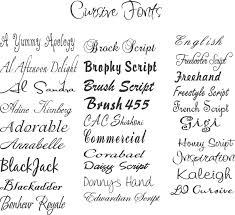 Cursive Fonts
A Yummy Apology
Al Afternoon Delight
Alako
Aladdin
Aldine Kirnberg
Adorable
Annabelle
BlackJack
Blackadder
Bonheur Royale
Brock Script
Brophy Script
Brush Script
Brush 455
CAC Shishoni
Commercial
Corabael
Daisy Script
Donny's Hand
Edwardian Script
English
Freebooter Script
Freehand
Freestyle Script
French Script
Gigi
Honey Script
Inspiration
Kaleigh
LD Cursive